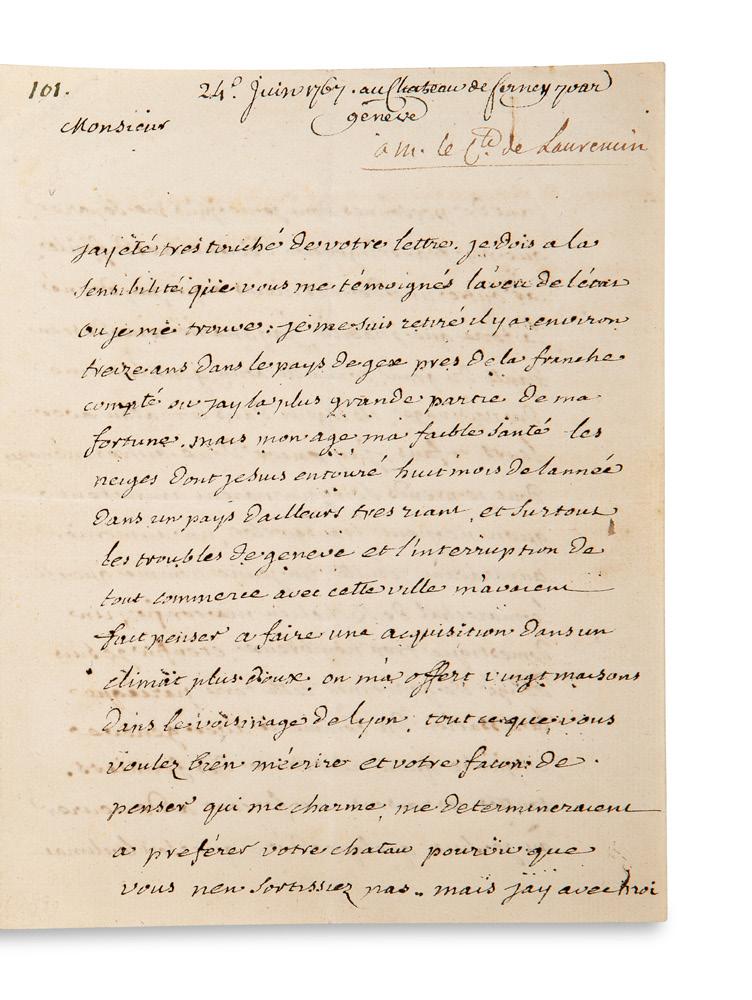 101.
24e. Juin 1767. au Chateau de ferney par
geneve
Monsieur
a M. le Cte. de Laurencin
jay été tres touché de votre lettre. je dois a la
sensibilité que vous me témoignés laveu de létat
ou je me trouve: je me suis retiré il y a environ
treize ans dans le pays de gex pres de la franche
compté ou jay la plus grande partie de ma
fortune. mais mon age ma faible santé les
neiges dont je suis entouré huit mois de lannée
dans un pays dailleurs tres riant, et surtout
les troubles de geneve et l'interruption de
tout commerce avec cette ville m'avaient
fait penser a faire une acquisition dans un
climat plus doux. on m'a offert vingt maisons
dans le voisinage de lyon. tout ce que vous
voulez bien mécrire et votre facon de
penser qui me charme, me determineraient
a preférer votre chatau pourvu que
vous nen sortissiez pas.. mais jay avec moi